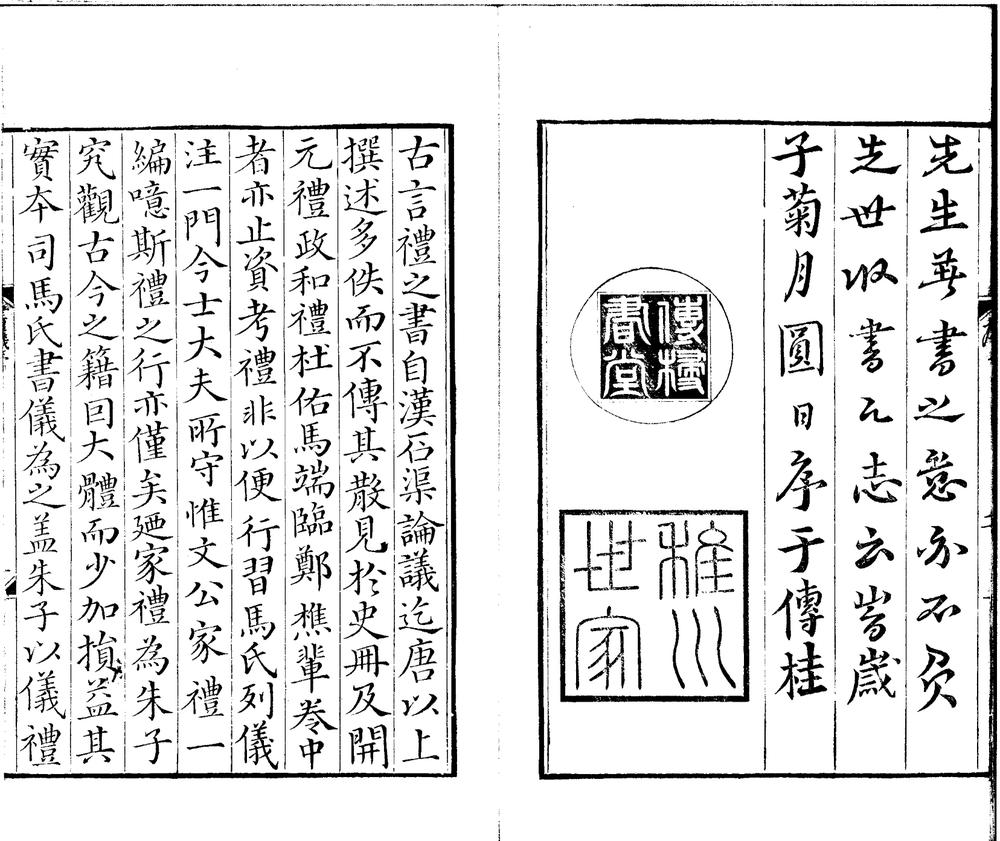 先生著書之意亦不負
先世收書之志云峕歲
子菊月圓日序于傳桂
傳桂書堂
稚川世家
古言禮之書自漢石渠論議迄唐以上
撰述多佚而不傳其散見於史冊及開
元禮政和禮杜佑馬端臨鄭樵輩卷中
者亦止資考禮非以便行習馬氏列儀
注一門今士大夫所守惟文公家禮一
編噫斯禮之行亦僅矣廼家禮為朱子
究觀古今之籍因大體而少加損益其
實本司馬氏書儀為之盖朱子以儀禮